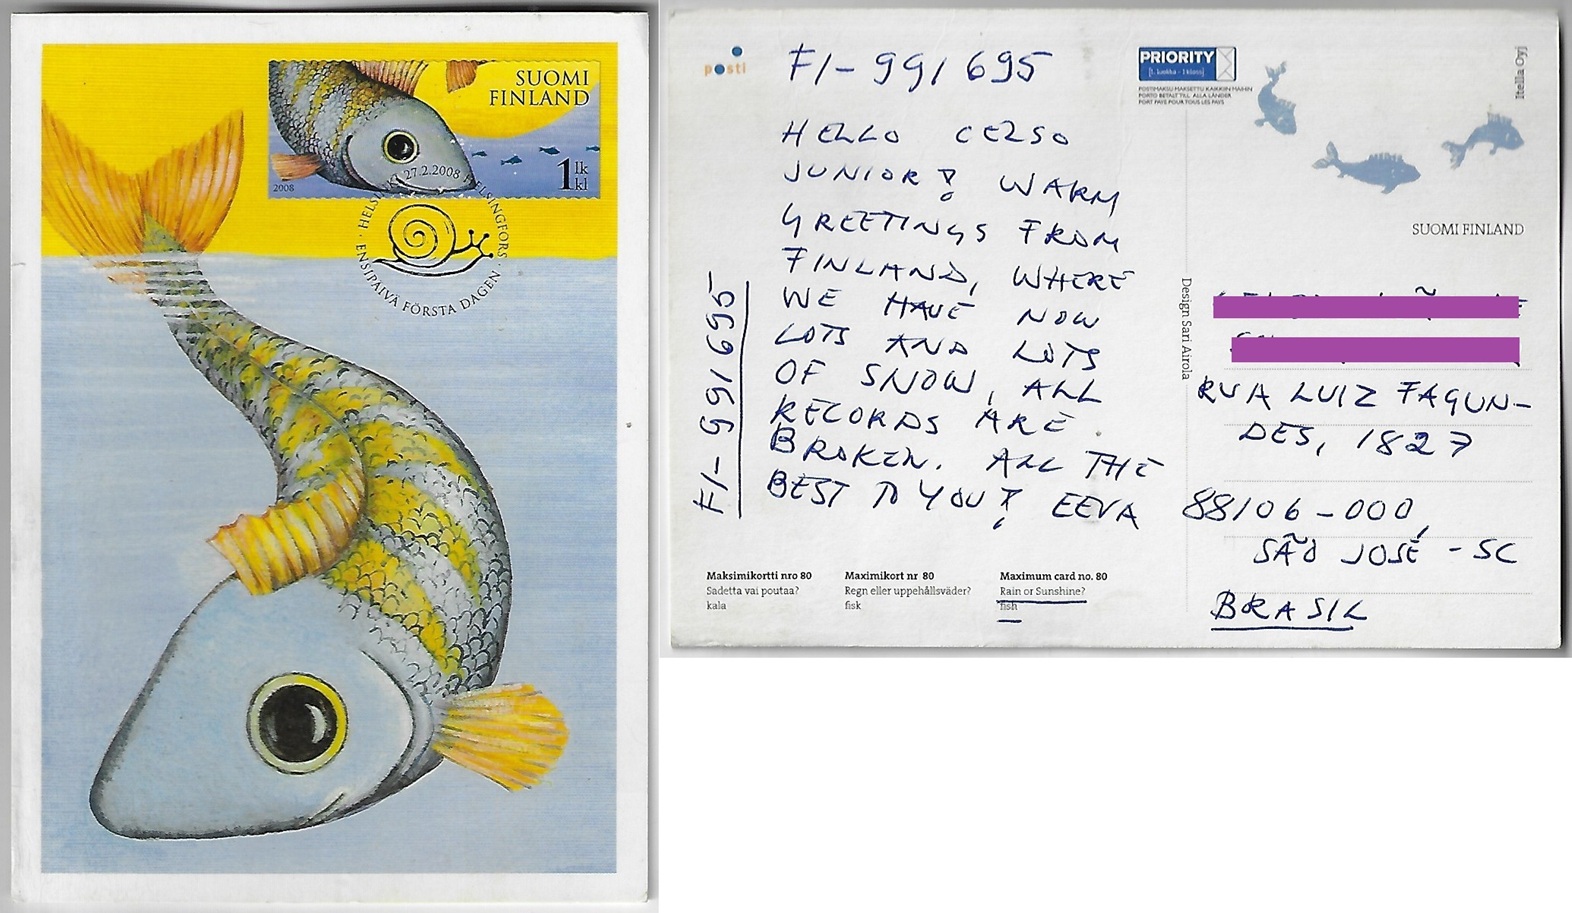 SUOMI
FINLAND
1 lk
kl
2008
HELSINKI 27.2.2008 HELSINGFORS
ENSIPÄIVÄ FÖRSTA DAGEN
posti
FI-991695
PRIORITY
[1. luokka - 1 klass]
POSTIMAKSU MAKSETTU KAIKKIIN MAIHIN
PORTO BETALT TILL ALLA LÄNDER
PORT PAYÉ POUR TOUS LES PAYS
Itella Oyj
HELLO CELSO
JUNIOR! WARM
GREETINGS FROM
FINLAND, WHERE
WE HAVE NOW
LOTS AND LOTS
OF SNOW, ALL
RECORDS ARE
BROKEN. ALL THE
BEST TO YOU! EEVA
FI-991695
SUOMI FINLAND
Design Sari Airola
RUA LUIZ FAGUN-
DES, 1827
88106-000,
SÃO JOSÉ - SC
BRASIL
Maksimikortti nro 80
Sadetta vai poutaa?
kala
Maximikort nr 80
Regn eller uppehållsväder?
fisk
Maximum card no. 80
Rain or Sunshine?
fish